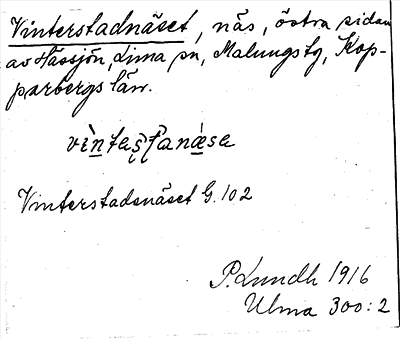 Vinterstadnäset, näs, östra sidan
av Hässjön, Lima sn, Malungs tg, Kop-
parbergs län.
vìntesṭanǽsa
Vinterstadsnäset G. 102
P. Lundh 1916
Ulma 300:2